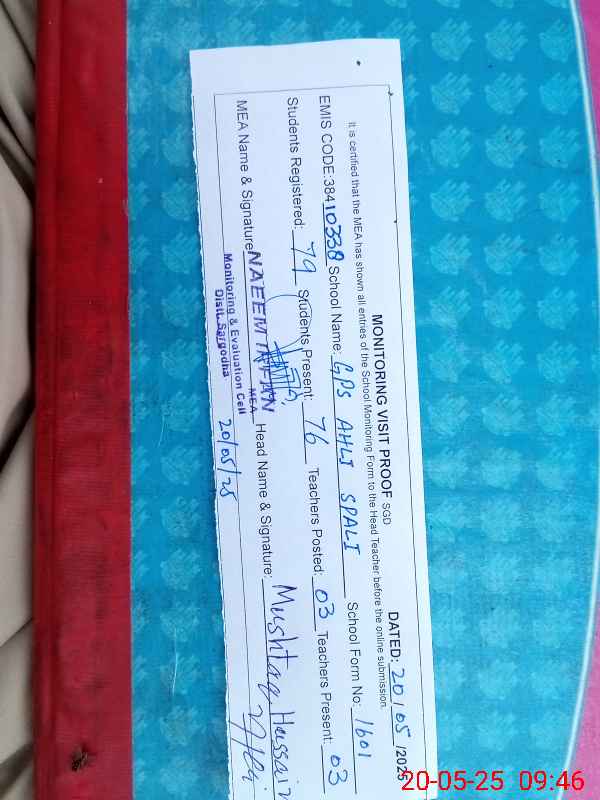 MONITORING VISIT PROOF SGD
DATED: 20/05/2025
It is certified that the MEA has shown all entries of the School Monitoring Form to the Head Teacher before the online submission.
EMIS CODE:38410338 School Name: GPS AHLI SPALI School Form No: 1601
Students Registered: 79 Students Present: 76 Teachers Posted: 03 Teachers Present: 03
MEA Name & Signature NAEEM IRFAN Head Name & Signature: Mushtaq Hussain
MEA
Monitoring & Evaluation Cell
Distt. Sargodha
20/05/25
20-05-25 09:46